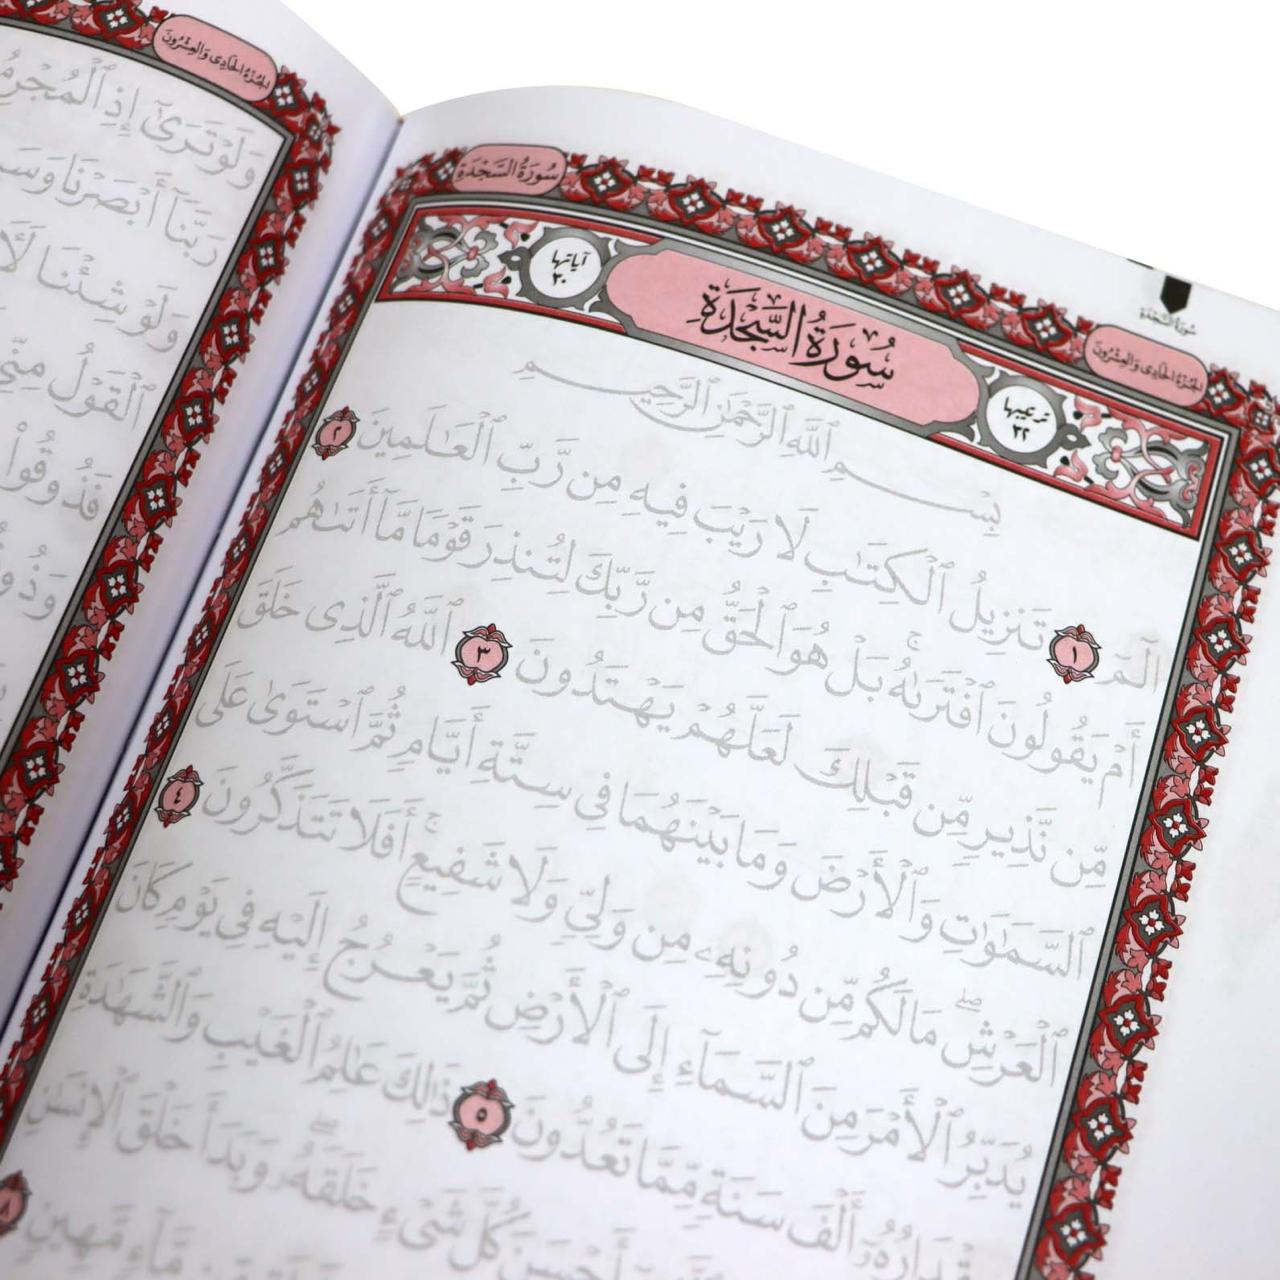 الجزء الحادى والعشرون
وَلَوْ تَرَىٰٓ إِذِ ٱلْمُجْرِمُ
رَبَّنَآ أَبْصَرْنَا وَسَ
وَلَوْ شِئْنَا لَأ
ٱلْقَوْلُ مِنِّي
فَذُوقُوا۟
وَذُو
سُورَةُ السَّجْدَةِ
الجزء الحادى والعشرون
سورة السجدة
ترتيبها ٣٢
سُورَةُ السَّجْدَةِ
آياتها ٣٠
بِسْمِ ٱللَّهِ ٱلرَّحْمَٰنِ ٱلرَّحِيمِ
الٓمٓ ١ تَنزِيلُ ٱلْكِتَٰبِ لَا رَيْبَ فِيهِ مِن رَّبِّ ٱلْعَٰلَمِينَ ٢
أَمْ يَقُولُونَ ٱفْتَرَىٰهُ ۚ بَلْ هُوَ ٱلْحَقُّ مِن رَّبِّكَ لِتُنذِرَ قَوْمًا مَّآ أَتَىٰهُم
مِّن نَّذِيرٍ مِّن قَبْلِكَ لَعَلَّهُمْ يَهْتَدُونَ ٣ ٱللَّهُ ٱلَّذِى خَلَقَ
ٱلسَّمَٰوَٰتِ وَٱلْأَرْضَ وَمَا بَيْنَهُمَا فِى سِتَّةِ أَيَّامٍ ثُمَّ ٱسْتَوَىٰ عَلَى
ٱلْعَرْشِ ۖ مَا لَكُم مِّن دُونِهِۦ مِن وَلِىٍّ وَلَا شَفِيعٍ ۚ أَفَلَا تَتَذَكَّرُونَ ٤
يُدَبِّرُ ٱلْأَمْرَ مِنَ ٱلسَّمَآءِ إِلَى ٱلْأَرْضِ ثُمَّ يَعْرُجُ إِلَيْهِ فِى يَوْمٍ كَانَ
مِقْدَارُهُۥٓ أَلْفَ سَنَةٍ مِّمَّا تَعُدُّونَ ٥ ذَٰلِكَ عَٰلِمُ ٱلْغَيْبِ وَٱلشَّهَٰدَةِ
أَحْسَنَ كُلَّ شَىْءٍ خَلَقَهُۥ ۖ وَبَدَأَ خَلْقَ ٱلْإِنسَٰنِ
مَّآءٍ مَّهِينٍ ٨